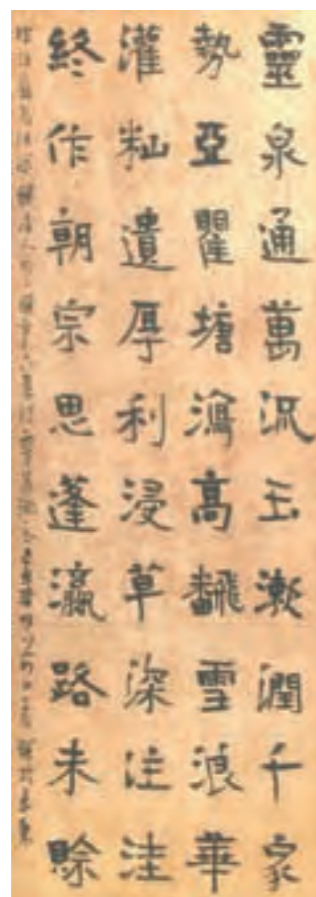 靈泉通萬派玉漱潤千家
勢亞瞿塘瀉高飜雪浪華
灌籼遺厚利浸草深注洼
終作朝宗思蓬瀛路未賒